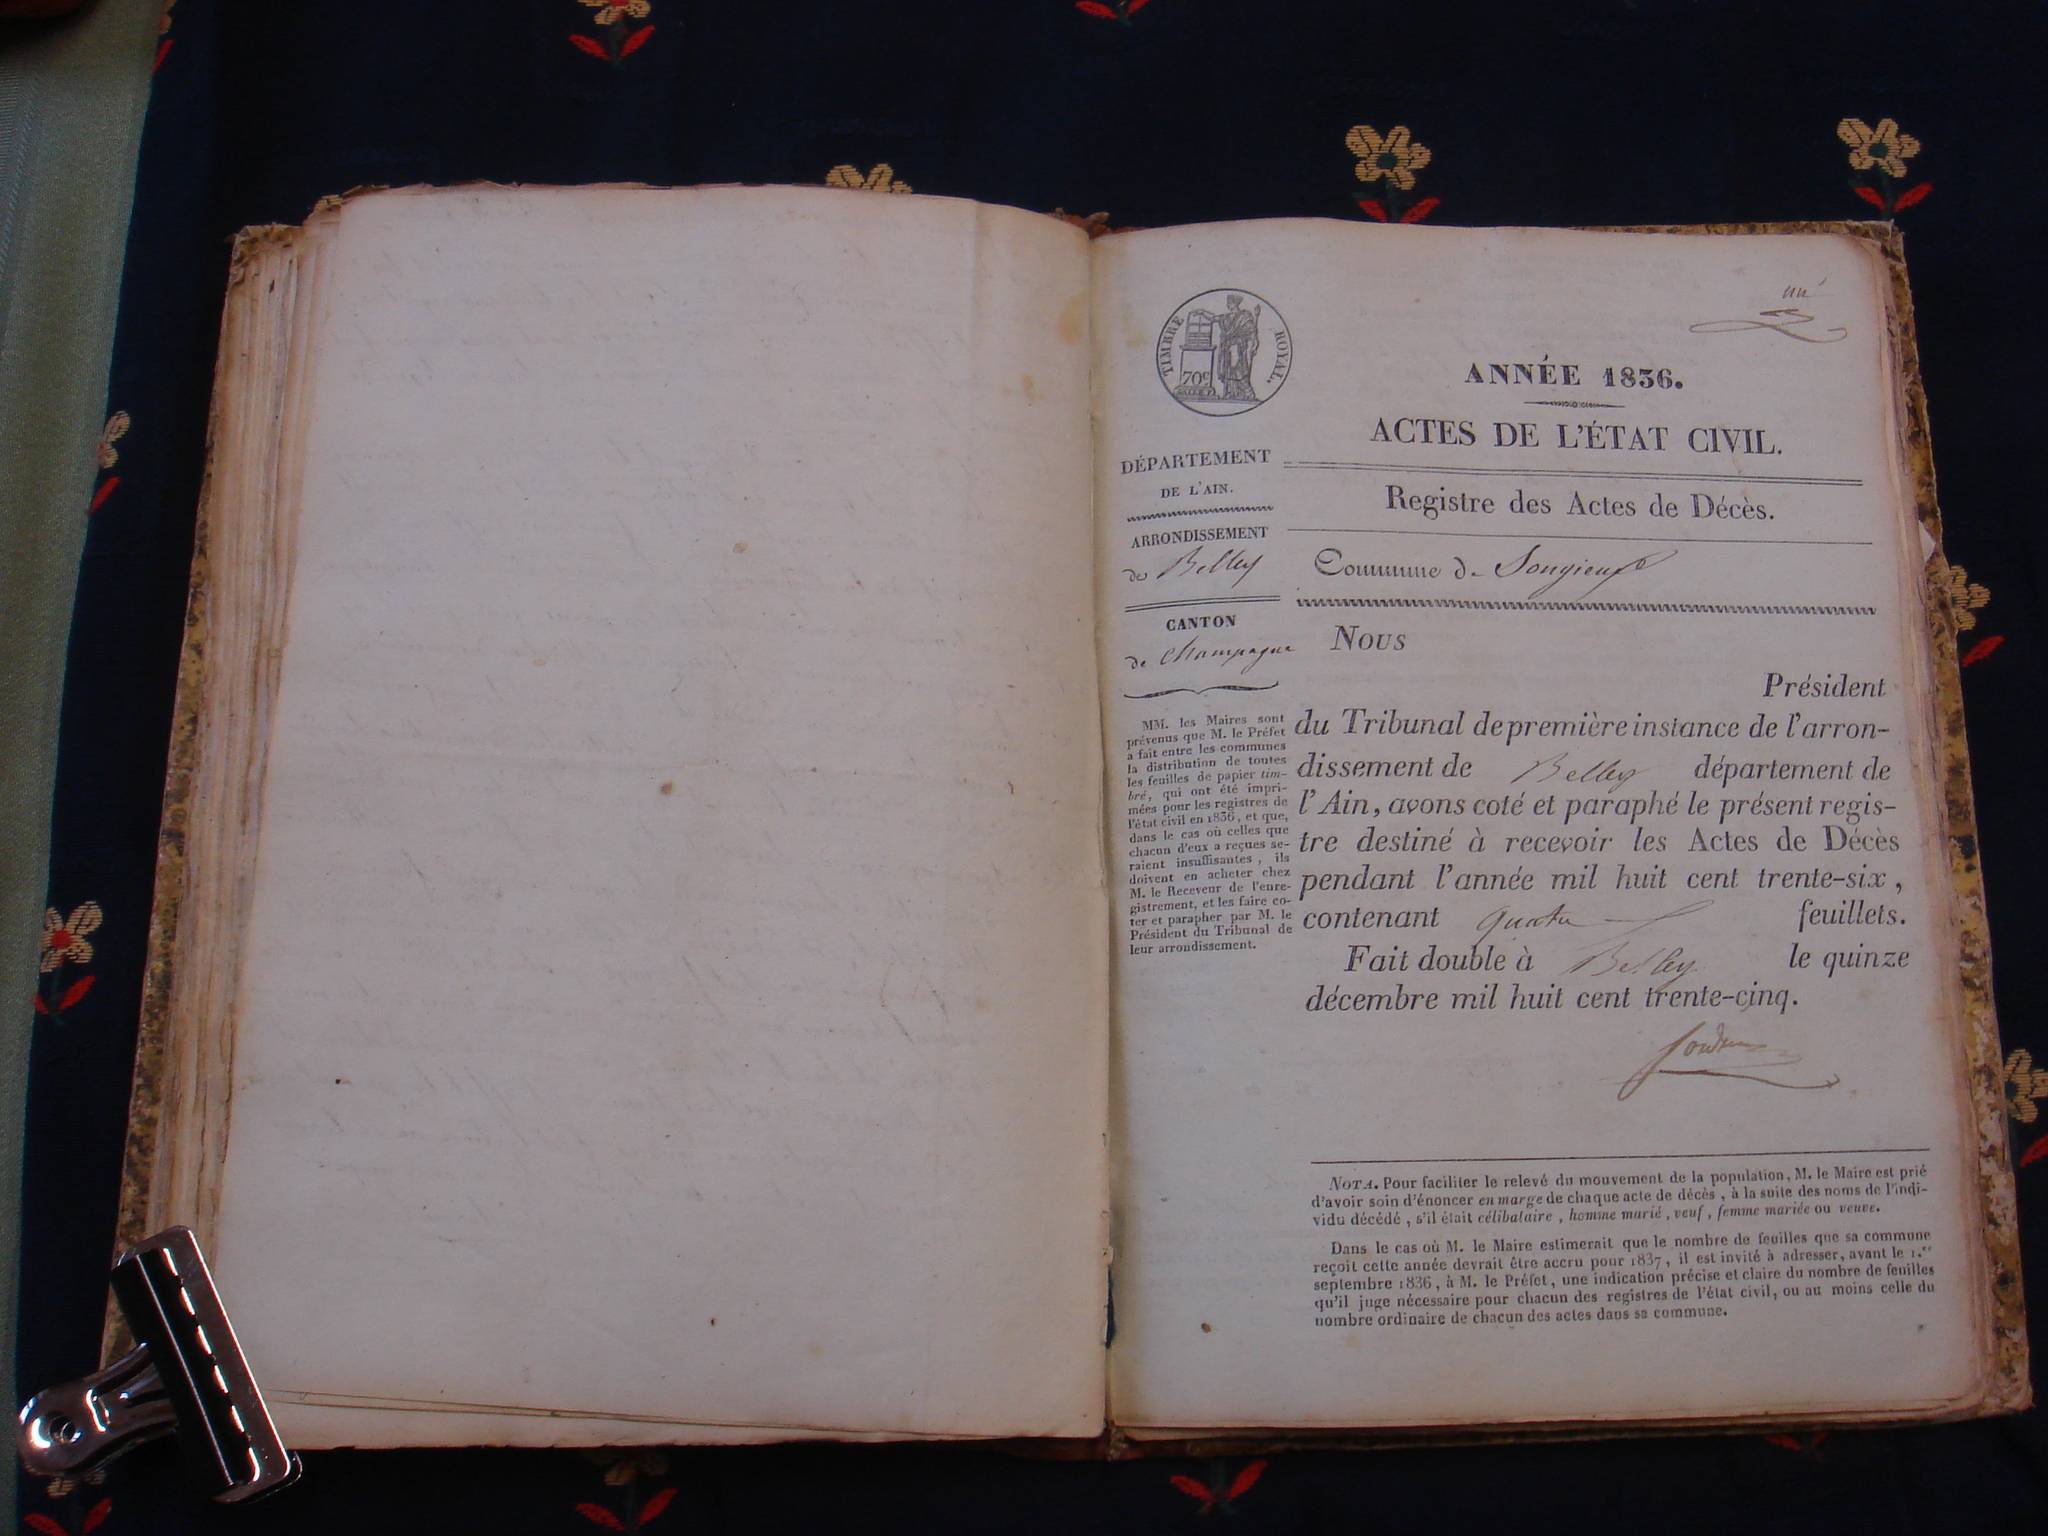 un
TIMBRE ROYAL.
70c
ANNÉE 1836.
ACTES DE L'ÉTAT CIVIL.
Registre des Actes de Décès.
Commune de Songieux
DÉPARTEMENT
DE L'AIN.
ARRONDISSEMENT
de Belley
CANTON
de Champagne
MM. les Maires sont
prévenus que M. le Préfet
a fait entre les communes
la distribution de toutes
les feuilles de papier tim-
bré, qui ont été impri-
mées pour les registres de
l'état civil en 1836, et que,
dans le cas où celles que
chacun d'eux a reçues se-
raient insuffisantes, ils
doivent en acheter chez
M. le Receveur de l'enre-
gistrement, et les faire co-
ter et parapher par M. le
Président du Tribunal de
leur arrondissement.
Nous
Président
du Tribunal de première instance de l'arron-
dissement de Belley département de
l'Ain, avons coté et paraphé le présent regis-
tre destiné à recevoir les Actes de Décès
pendant l'année mil huit cent trente-six,
contenant quatre feuillets.
Fait double à Belley le quinze
décembre mil huit cent trente-cinq.
NOTA. Pour faciliter le relevé du mouvement de la population, M. le Maire est prié
d'avoir soin d'énoncer en marge de chaque acte de décès, à la suite des noms de l'indi-
vidu décédé, s'il était célibataire, homme marié, veuf, femme mariée ou veuve.
Dans le cas où M. le Maire estimerait que le nombre de feuilles que sa commune
reçoit cette année devrait être accru pour 1837, il est invité à adresser, avant le 1.er
septembre 1836, à M. le Préfet, une indication précise et claire du nombre de feuilles
qu'il juge nécessaire pour chacun des registres de l'état civil, ou au moins celle du
nombre ordinaire de chacun des actes dans sa commune.